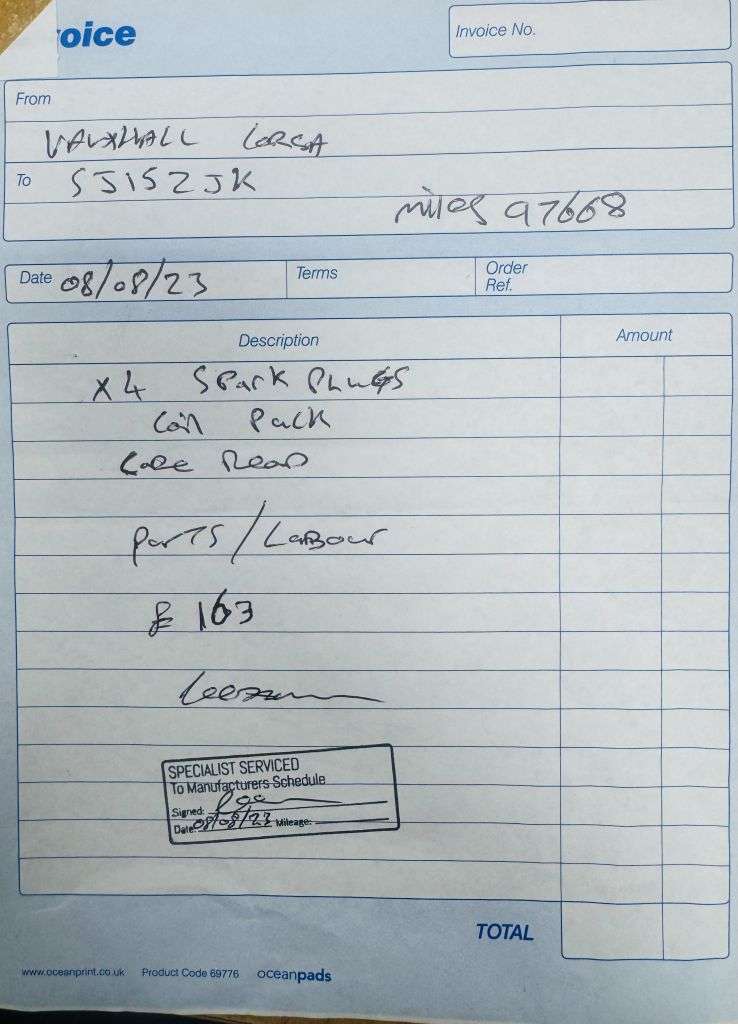 oice
Invoice No.
From
VAUXHALL CORSA
To SJ15ZJK
miles 97668
Date 08/08/23 Terms Order Ref.
Description Amount
x4 Spark Plugs
Coil Pack
Code Read
Parts/Labour
£ 163
SPECIALIST SERVICED
To Manufacturers Schedule
Signed:
Date: 08/08/23 Mileage:
TOTAL
www.oceanprint.co.uk Product Code 69776 oceanpads